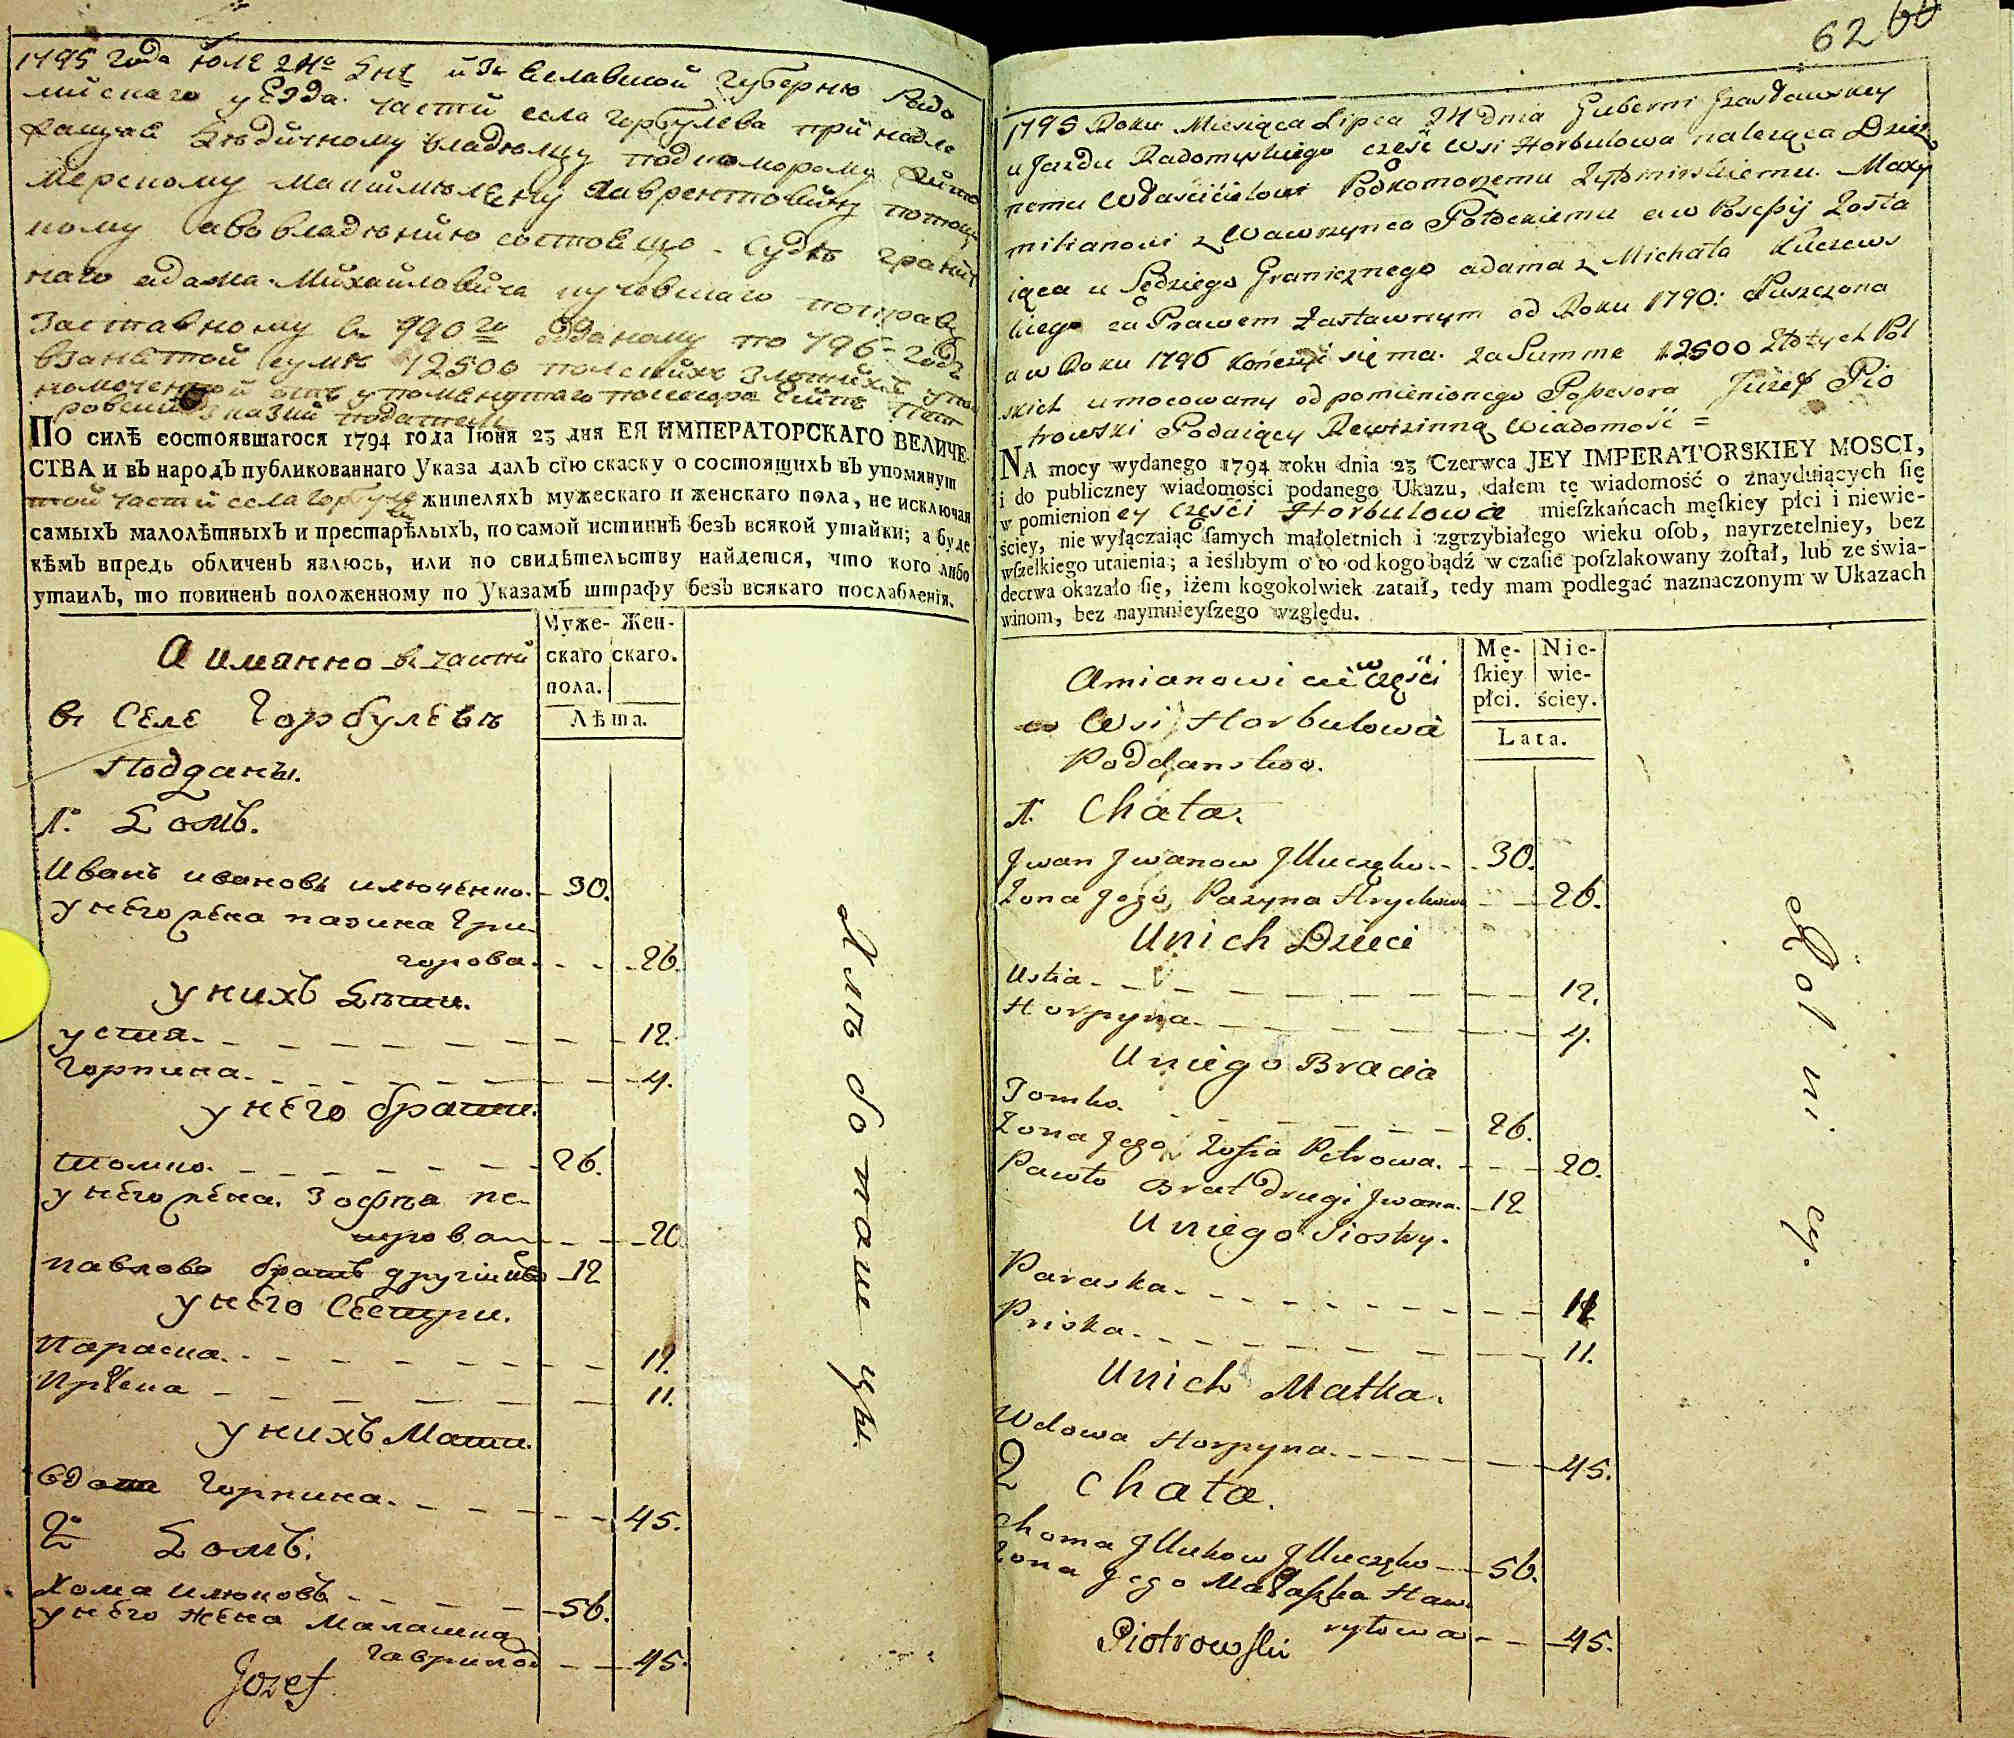 1795 года Июля 24го дня Изъ Изяславской Губернии Радо
мискаго уезда части села Горбулева принадле
жащае дѣдичному владѣлцу подкоморому Жито
мерскому Макаимилиену Лаврентовичу потоц
кому аво владѣнию состоящо Судѣ гранич
наго адама Михайловича кучевшаго по праву
Заставному въ 790го отданому по 796 годъ
взанятой сумѣ 12500 полскихъ злотихъ упол
номоченной отъ упоменутаго посесора Пет
ровский податель
ПО силѣ состоявшагося 1794 года Іюня 23 дня ЕЯ ИМПЕРАТОРСКАГО ВЕЛИЧЕ-
СТВА и въ народъ публикованнаго Указа далъ сїю скаску о состоящихъ въ упомянут
той части села Горбулева жителяхъ мужескаго и женскаго пола, не исключая
самыхъ малолѣтныхъ и престарѣлыхъ, по самой истиннѣ безъ всякой утайки; а буде
кѣмъ впредь обличенъ явлюсь, или по свидѣтельству найдется, что кого либо
утаилъ, то повиненъ положенному по Указамъ штрафу безъ всякаго послабленїя.
Муже- Жен-
скаго скаго.
пола.
Лѣта.
А имянно в части
в Селе Горбулевѣ
Подданы.
1. Домъ.
Иванъ ивановъ илюченко. 30.
у него жена пазина Гри
горова. 26.
у нихъ дѣти.
устия. 12.
Горпина. 4.
у него брати.
Томко. 26.
у него жена Зофѣа пе
трова 20
павлово братъ другий Ива 12
у него Сестри.
Параска. 12.
Приска 11.
у нихъ Мати.
вдова Горпина. 45.
2 Домъ.
Хома илюковъ 56.
у него жена Малашка
гаврилова 45.
Jozef
Хлѣбопашцы.
62 60
1795 Roku Miesiąca Lipca 24 dnia Guberni Izasławskiey
ujazdu Radomyskiego część Wsi Horbulowa należąca Dziedz
nemu Właścicielowi Podkomorzemu Żytomirskiemu Maxy
milianowi z Wawrzynca Potockiemu a w Possessyi zosta
iąca u Sędziego Granicznego adama z Michała Kuczews
kiego za Prawem Zastawnym od Roku 1790: Puszczona
a w Roku 1796 kończyć się ma. za Summe 12500 Złotych Pol
skich umocowany od pomienionego Possesora Jozef Pio
trowski Podaiący Rewizinną Wiadomość =
NA mocy wydanego 1794 roku dnia 23 Czerwca JEY IMPERATORSKIEY MOSCI,
i do publiczney wiadomości podanego Ukazu, dałem tę wiadomość o znayduiących ſię
w pomienioney części Horbulowa mieſzkańcach męſkiey płci i niewie-
ściey, nie wyłączaiąc ſamych małoletnich i zgrzybiałego wieku oſob, nayrzetelniey, bez
wſzelkiego utaienia; a ieślibym o to od kogo bądź w czaſie poſzlakowany zoſtał, lub ze świa-
dectwa okazało ſię, iżem kogokolwiek zataił, tedy mam podlegać naznaczonym w Ukazach
winom, bez naymnieyſzego względu.
Mę- Nie-
ſkiey wie-
płci. ściey.
Lata.
Amianowicie w części
Wsi Horbulowa
Poddanstwo.
1. Chata.
Jwan Jwanow Jlluczęko 30.
Żona Jego Pazyna Hryckowa 26.
U nich Dzieci
Ustia 12.
Horpyna 4.
U niego Bracia
Tomko. 26.
Żona Jego Zofia Petrowa. 20.
Pawło Brat drugi Jwana. 12
U niego Siostry.
Paraska. 12
Priska. 11.
U nich Matka.
Wdowa Horpyna 45.
2 Chata.
Choma Jllukow Jlluczęko 56.
Żona Jego Małaszka Haw
ryłowa 45.
Piotrowski
Rolnicy.